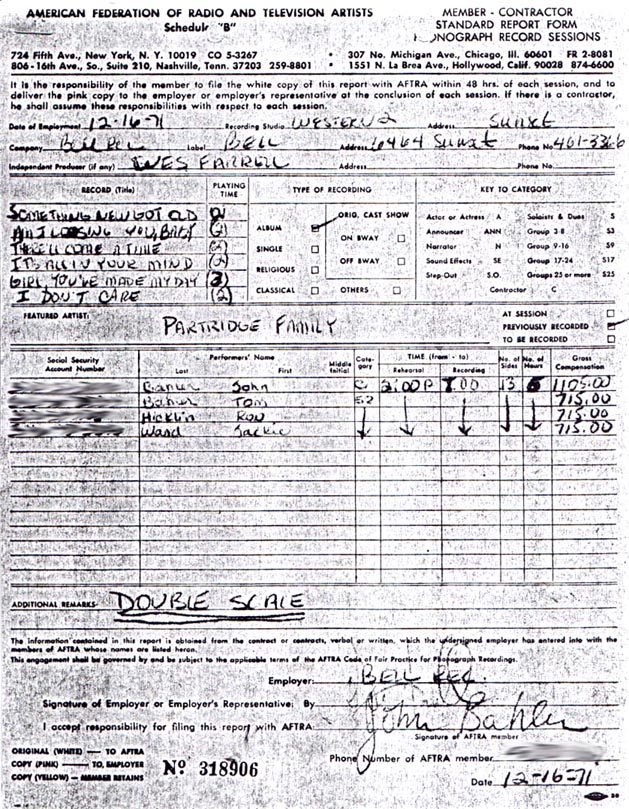 AMERICAN FEDERATION OF RADIO AND TELEVISION ARTISTS
Schedule "B"
MEMBER - CONTRACTOR
STANDARD REPORT FORM
ONOGRAPH RECORD SESSIONS
724 Fifth Ave., New York, N. Y. 10019 CO 5-3267 • 307 No. Michigan Ave., Chicago, Ill. 60601 FR 2-8081
806 - 16th Ave., So., Suite 210, Nashville, Tenn. 37203 259-8801 • 1551 N. La Brea Ave., Hollywood, Calif. 90028 874-6600
It is the responsibility of the member to file the white copy of this report with AFTRA within 48 hrs. of each session, and to
deliver the pink copy to the employer or employer's representative at the conclusion of each session. If there is a contractor,
he shall assume these responsibilities with respect to each session.
Date of Employment 12-16-71 Recording Studio WESTERN 2 Address Sunset
Company BELL REC Label BELL Address 6464 Sunset Phone No. 461-3366
Independent Producer (if any) WES FARRELL Address Phone No.
RECORD (Title) PLAYING TIME
SOMETHING NEW GOT OLD 2
AM I LOOSING YOU, BABY (2)
THERE'LL COME A TIME (2)
IT'S ALL IN YOUR MIND (2)
GIRL, YOU'VE MADE MY DAY (3)
I DON'T CARE (2)
TYPE OF RECORDING
ALBUM
SINGLE
RELIGIOUS
CLASSICAL
ORIG. CAST SHOW
ON BWAY
OFF BWAY
OTHERS
KEY TO CATEGORY
Actor or Actress A Soloists & Duos S
Announcer ANN Group 3-8 S3
Narrator N Group 9-16 S9
Sound Effects SE Group 17-24 S17
Step-Out S.O. Groups 25 or more S25
Contractor C
FEATURED ARTIST: PARTRIDGE FAMILY
AT SESSION
PREVIOUSLY RECORDED
TO BE RECORDED
Social Security Account Number Performers' Name Last First Middle Initial Category TIME (from - to) Rehearsal Recording No. of Sides No. of Hours Gross Compensation
Bahler John C 2:00P 7:00 13 5 1105.00
Bahler Tom 715.00
Hicklin Ron 715.00
Ward Jackie 715.00
ADDITIONAL REMARKS DOUBLE SCALE
The information contained in this report is obtained from the contract or contracts, verbal or written, which the undersigned employer has entered into with the
members of AFTRA whose names are listed heron.
This engagement shall be governed by and be subject to the applicable terms of the AFTRA Code of Fair Practice for Phonograph Recordings.
Employer: BELL REC.
Signature of Employer or Employer's Representative: By
I accept responsibility for filing this report with AFTRA: John Bahler
Signature of AFTRA member
ORIGINAL (WHITE) — TO AFTRA
COPY (PINK) — TO EMPLOYER
COPY (YELLOW) — MEMBER RETAINS
No 318906
Phone Number of AFTRA member
Date 12-16-71